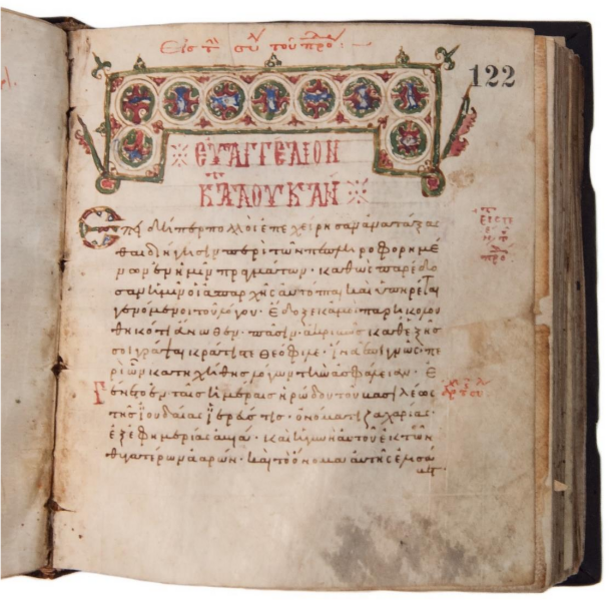 122
ΕΥΑΓΓΕΛΙΟΝ
ΚΑΤΑ ΛΟΥΚΑΝ
Επειδήπερ πολλοὶ ἐπεχείρησαν ἀνατάξας
θαι διήγησιν περὶ τῶν πεπληροφορημέ
νων ἐν ἡμῖν πραγμάτων · καθὼς παρέδο
σαν ἡμῖν οἱ ἀπαρχῆς αὐτόπται καὶ ὑπηρέται
γενόμενοι τοῦ λόγου · ἔδοξε κἀμοὶ παρηκολου
θηκότι ἄνωθεν · πᾶσιν ἀκριβῶς καθεξῆς
σοι γράψαι κράτιστε Θεόφιλε · ἵνα ἐπιγνῷς πε
ρὶ ὧν κατηχήθης λόγων τὴν ἀσφάλειαν · Ε
γένετο ἐν ταῖς ἡμέραις ἡρώδου τοῦ βασιλέως
τῆς ἰουδαίας ἱερεύς τις · ὀνόματι ζαχαρίας ·
ἐξ ἐφημερίας ἀβιά · καὶ ἡ γυνὴ αὐτοῦ ἐκ τῶν
θυγατέρων ἀαρών · καὶ τὸ ὄνομα αὐτῆς ἐλισά
βετ ·